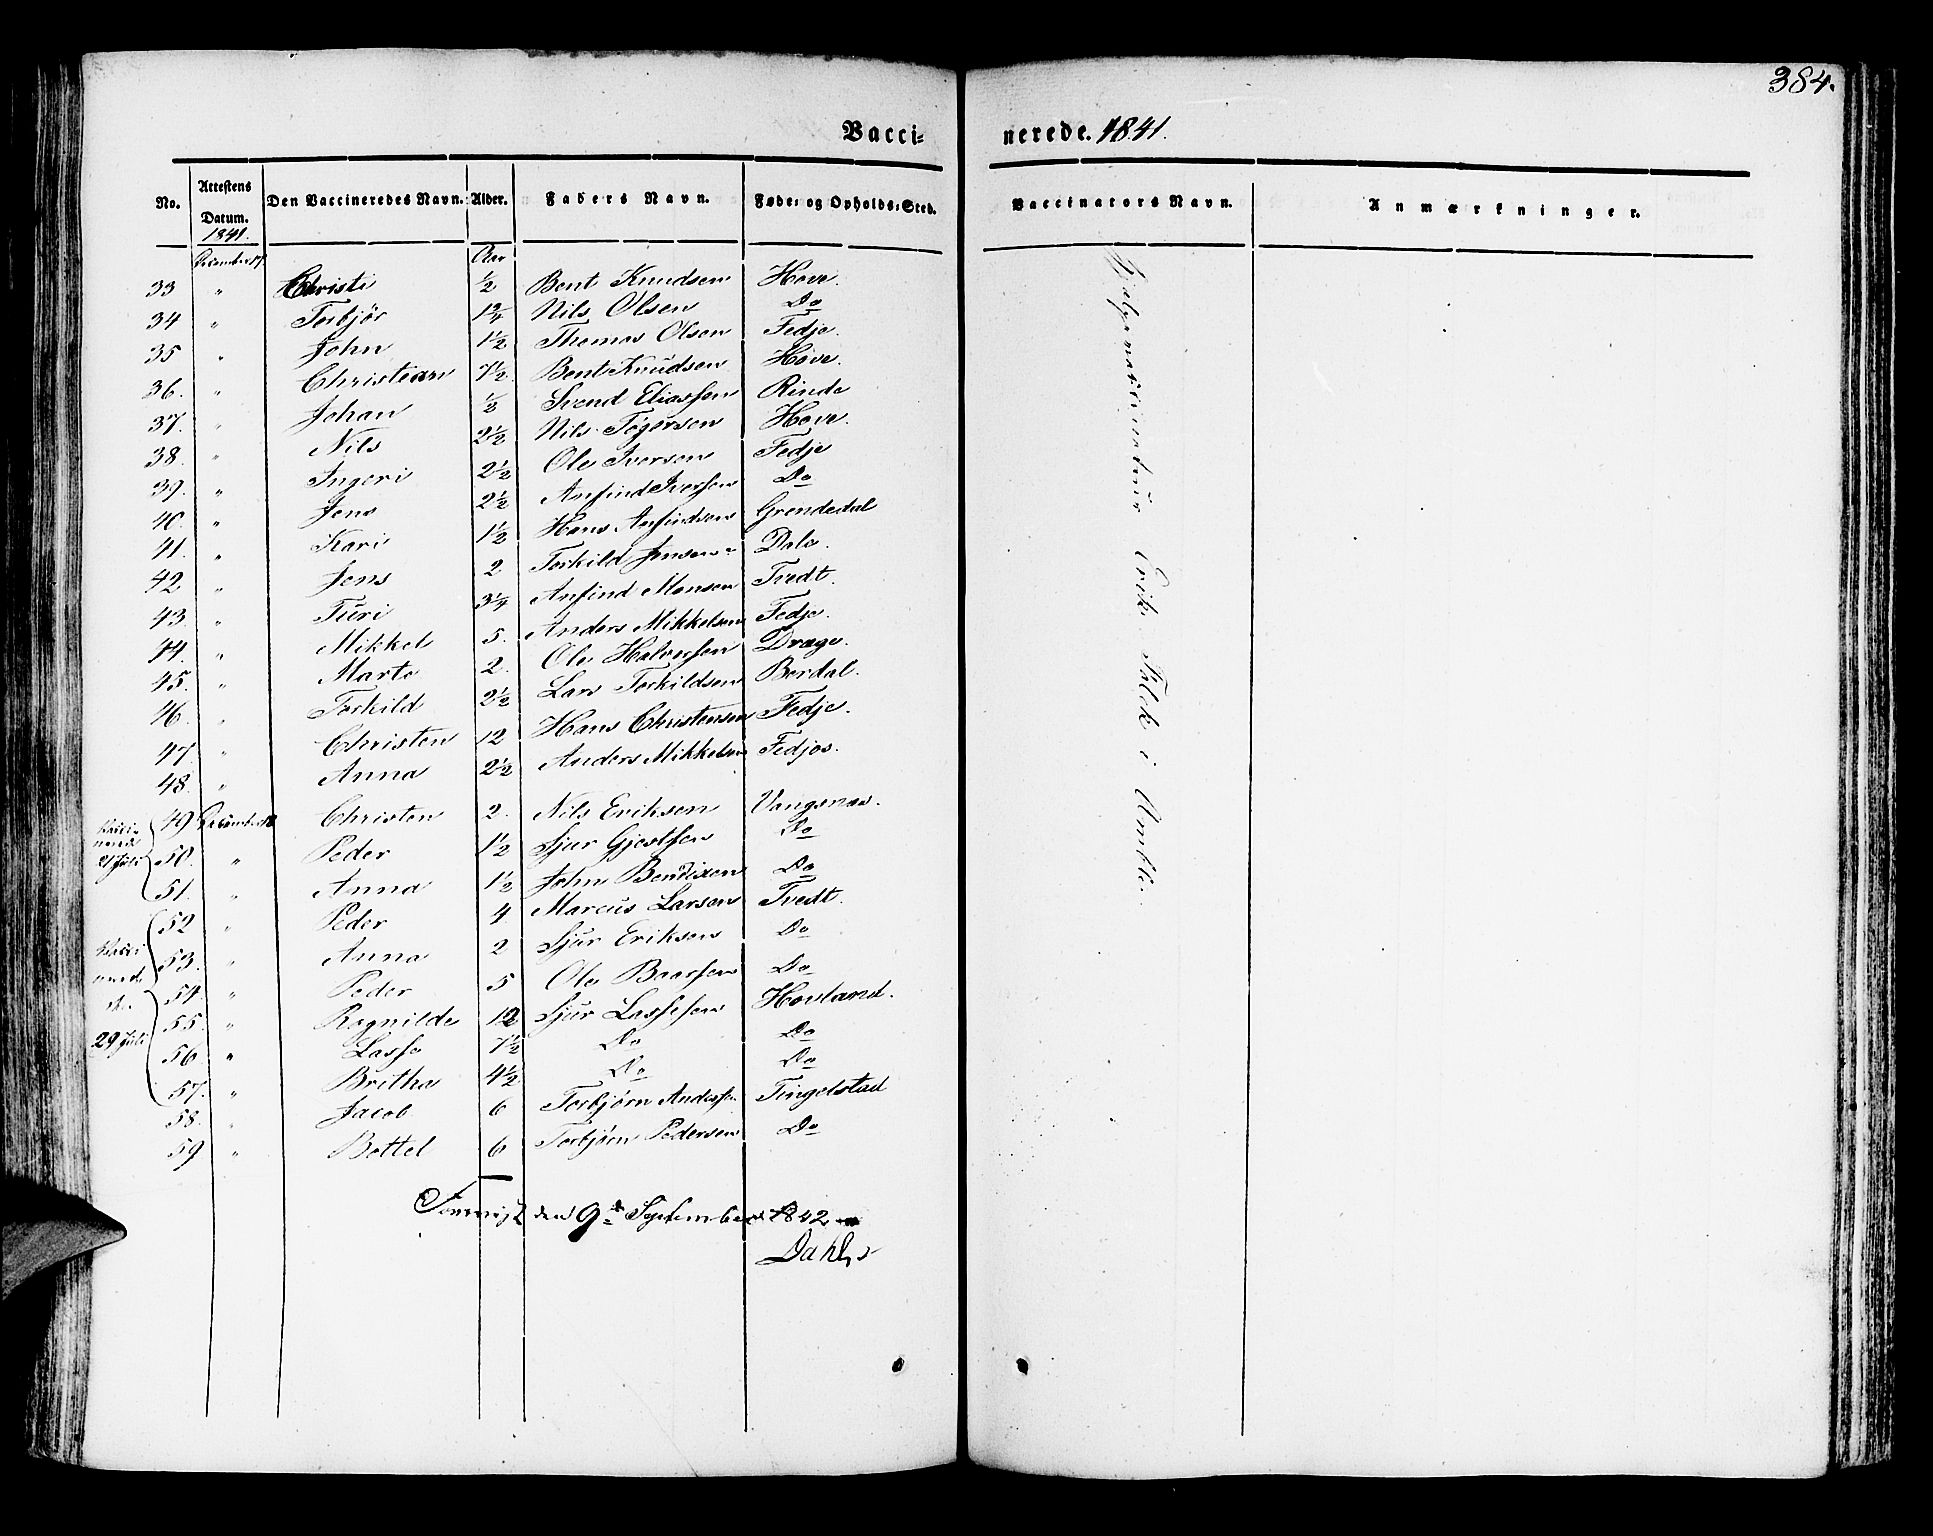 384.
Vacci- nerede. 1841.
No. Attestens Datum. 1841. Den Vaccineredes Navn. Alder. Faders Navn. Føde- og Opholds-Sted. Vaccinators Navn. Anmærkninger.
December 17. Aar
33 " Christi ½ Bent Knudsen Hove.
34 " Torbjør 1¾ Nils Olsen Do
35 " John 1½ Thomas Olsen Fedje.
36. " Christian 7½ Bent Knudsen Hove.
37. " Johan ½ Svend Eliassen Rinde
38. " Nils 2½ Nils Togersen Hove.
39. " Ingeri 2½ Ole Iversen Fedje
40. " Jens 2½ Anfind Iversen Do
41. " Kari 1½ Hans Anfindsen Grendedal
42 " Jens 2 Torkild Jensen Dale.
43. " Turi 3¼ Anfind Monsen Tvedt.
44. " Mikkel 5. Anders Mikkelsen Fedje.
45. " Marte 2. Ole Halvorsen Drage.
46. " Torkild 2½ Lars Torkildsen Berdal.
47. " Christen 12 Hans Christensen Fedje.
48. " Anna 2½ Anders Mikkelsen Fedjos.
49 December 18 Christen 2. Nils Eriksen Vangsnæs.
50. " Peder 1½ Sjur Gjestsen Do
51. " Anna 1½ John Bendixen Do
52 " Peder 4 Marcus Larsen Tvedt.
53. " Anna 2 Sjur Eriksen Do
54. " Peder 5 Ole Baarsen Do
55. " Ragnilde 12 Sjur Lassesen Hovland.
56 " Lasse 7½ Do Do
57. " Britha 4½ Do Do
58. " Jacob 6 Torbjørn Andersen Tingelstad
59 " Bottel 6 Torbjørn Pedersen Do
Vacci-
nerede
21 Juli
Vacci
nered
29 Juli
den 9de September 1842
Dahl
Erik Falck i Amble.